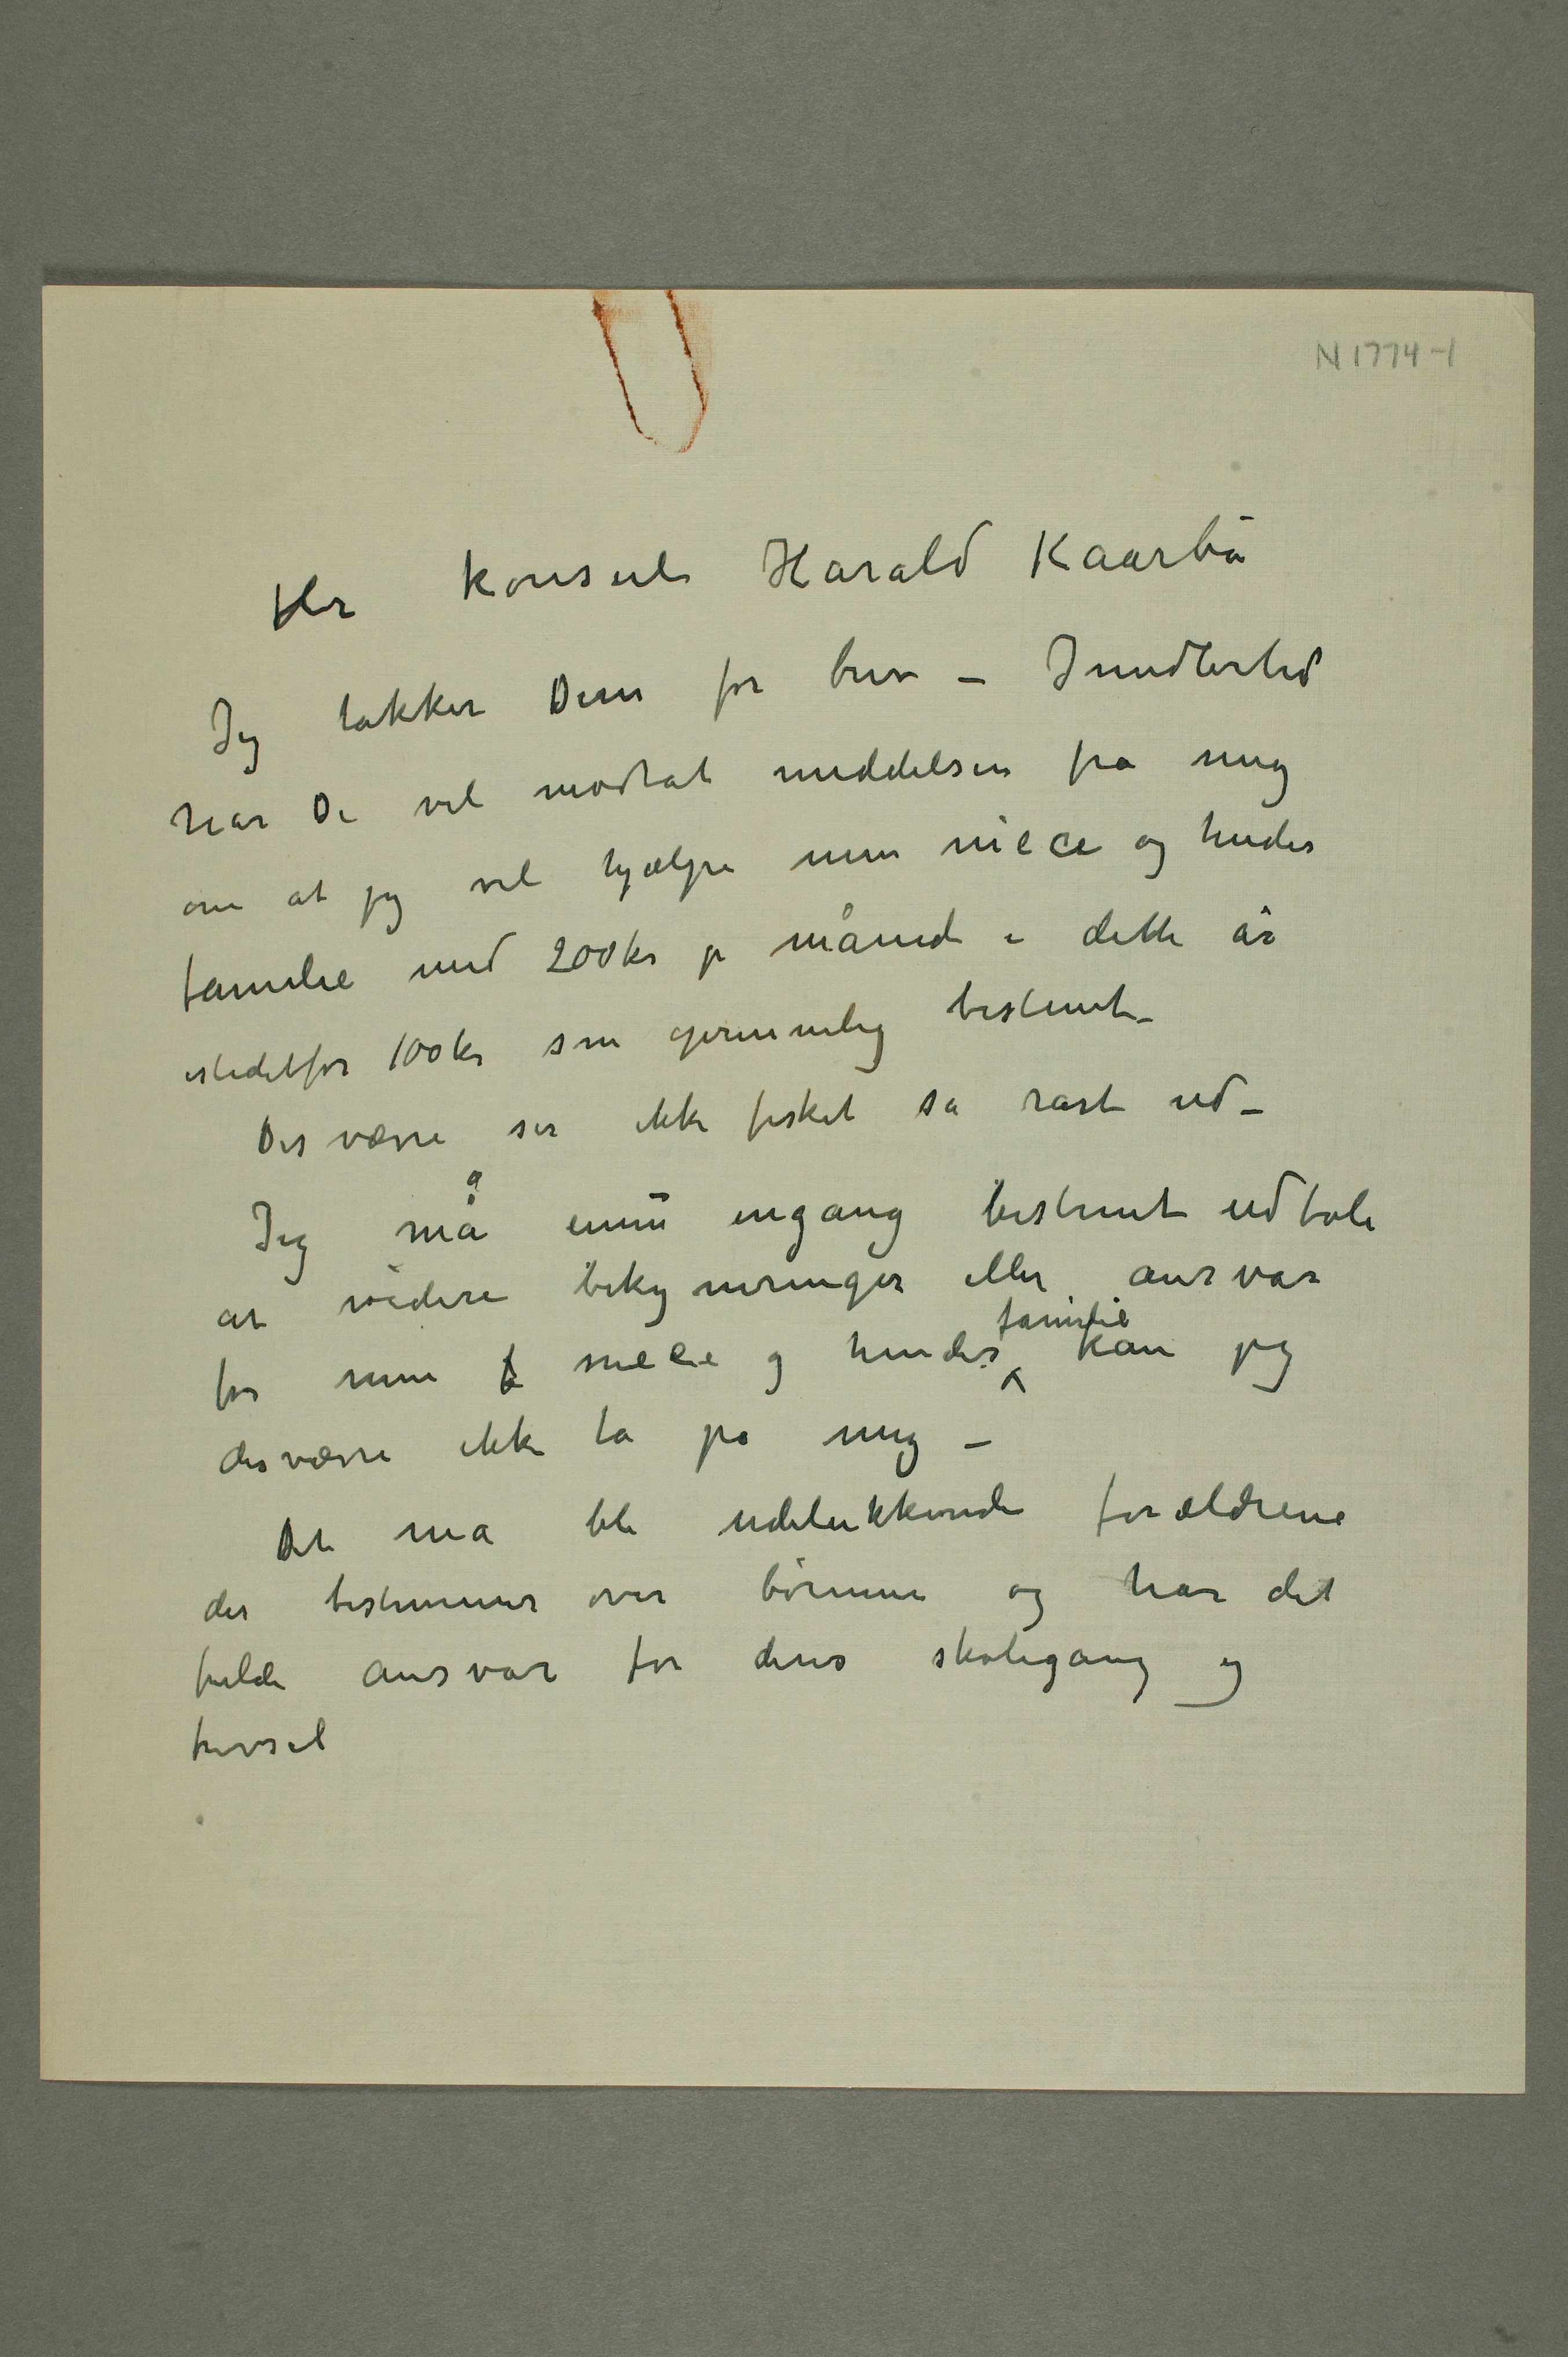 N 1774-1
Hr konsul Harald Kaarbø
Jeg takker Dem for brev – Imidlertid
har De vel modtat meddelsen fra mig
om at jeg vil hjælpe min niece og hendes
familie med 200 kr pr måned i dette år
istedetfor 100 kr som oprinnelig bestemt –
Desværre ser ikke fisket så rart ud –
Jeg må ennu engang bestemt udtale
at videre bekymringer eller ansvar
for min niece og hendes familie kan jeg
desværre ikke ta på mig –
Det må bli udelukkende forældrene
der bestemmer over børnene og har det
fulde ansvar for deres skolegang og
trivsel